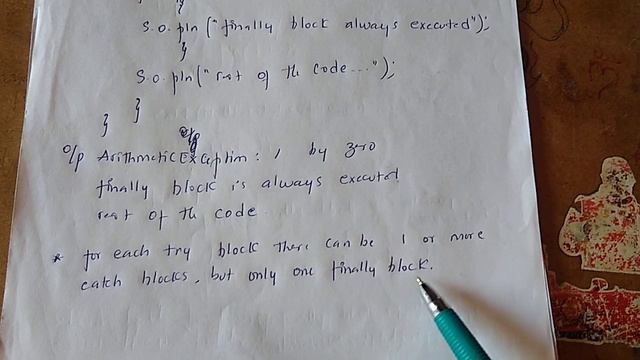 }
S.o.pln("finally block always executed");
}
S.o.pln("rest of the code...");
}
}
o/p ArithmeticException: / by zero
finally block is always executed
rest of the code
* for each try block there can be 1 or more
catch blocks, but only one finally block.